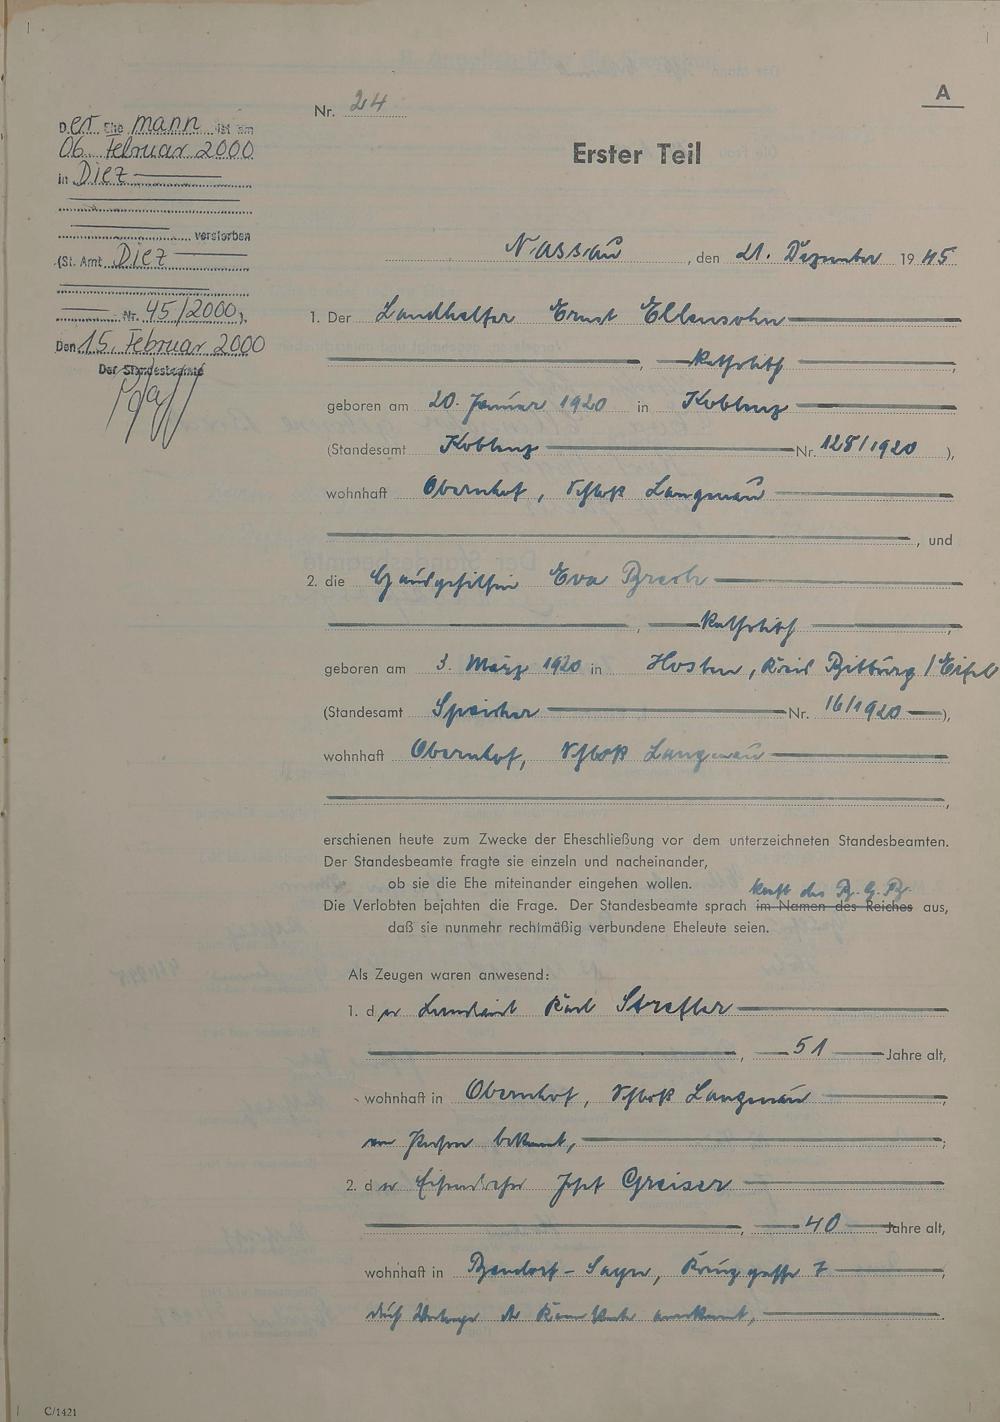 A
Nr. 24
Erster Teil
Der Ehemann ist am
06. Februar 2000
in Diez
verstorben
(St. Amt Diez
Nr. 45/2000).
Den 15. Februar 2000
Der Standesbeamte
Nassau, den 21. Dezember 1945
1. Der Landhelfer Ernst Ellensohn
, katholisch,
geboren am 20. Januar 1920 in Koblenz
(Standesamt Koblenz Nr. 128/1920),
wohnhaft Obernhof, Schloß Langenau
, und
2. die Hausgehilfin Eva Brech
, katholisch,
geboren am 3. März 1920 in Hosten, Kreis Bitburg/Eifel
(Standesamt Speicher Nr. 16/1920),
wohnhaft Obernhof, Schloß Langenau
,
erschienen heute zum Zwecke der Eheschließung vor dem unterzeichneten Standesbeamten.
Der Standesbeamte fragte sie einzeln und nacheinander,
ob sie die Ehe miteinander eingehen wollen.
kraft des B.G.B.
Die Verlobten bejahten die Frage. Der Standesbeamte sprach im Namen des Reiches aus,
daß sie nunmehr rechtmäßig verbundene Eheleute seien.
Als Zeugen waren anwesend:
1. der Landwirt Karl
, 51 Jahre alt,
wohnhaft in Obernhof, Schloß Langenau,
von Person bekannt,;
2. der Josef Greiser
, 40 Jahre alt,
wohnhaft in Bendorf-Sayn, Kreuzgasse 7,
durch Vorlage der Kennkarte anerkannt,
C/1421